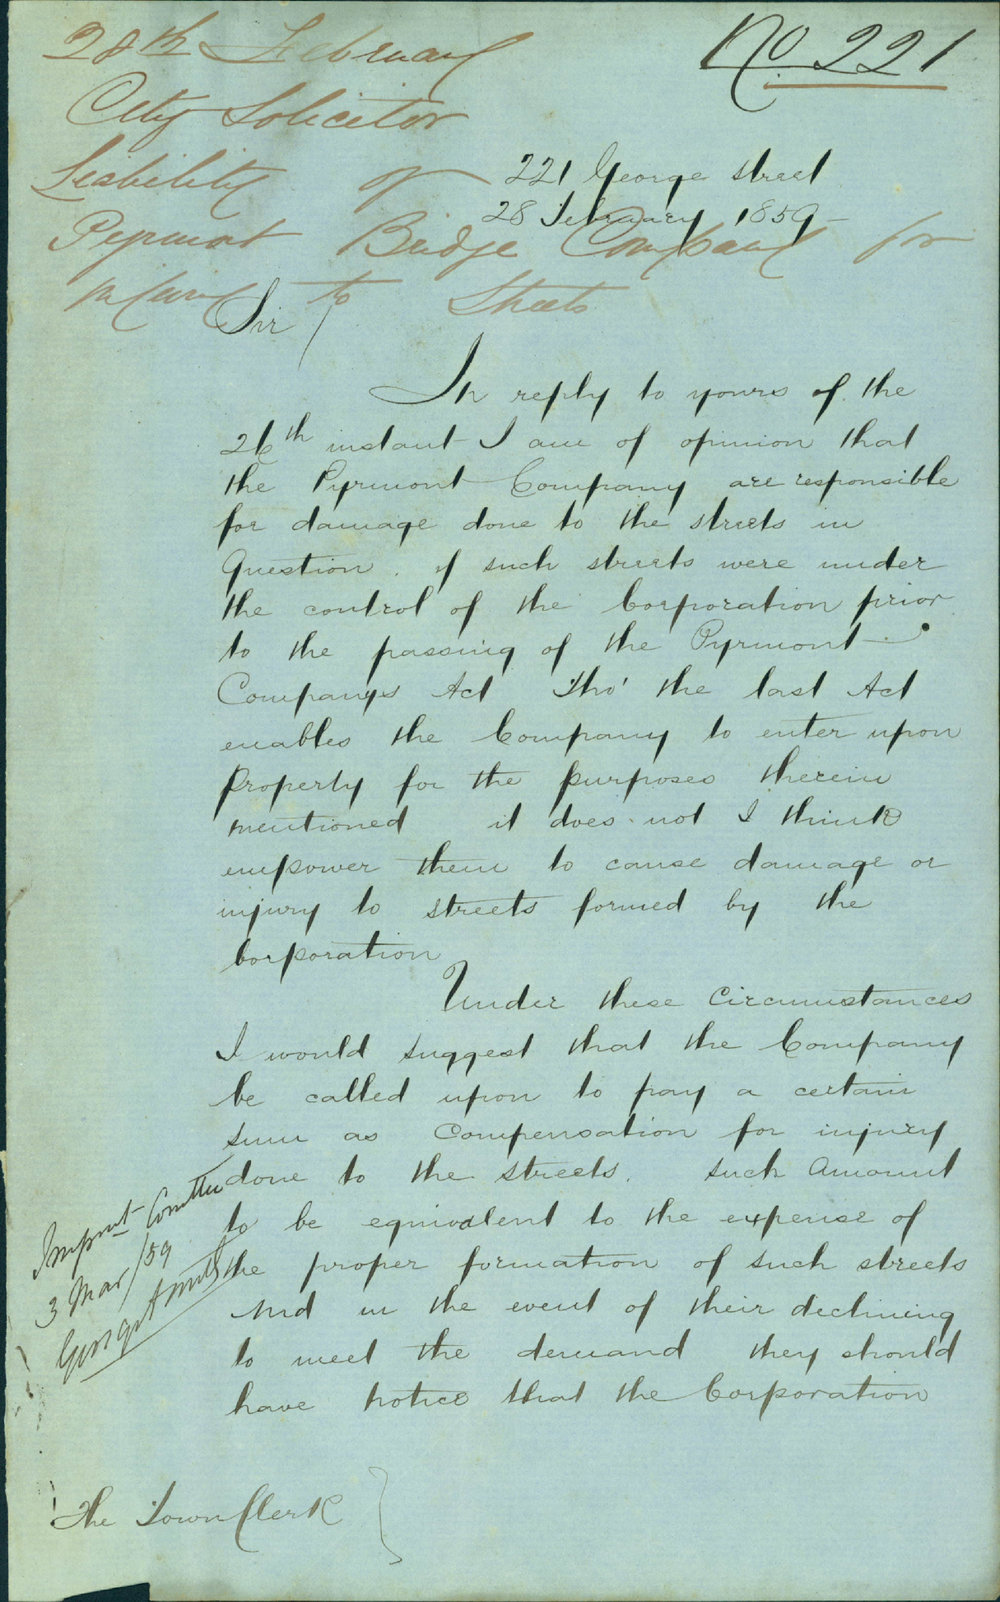 No 221
28th February
City Solicitor
Liability of
Pyrmont Bridge Company for
injury to Streets
221 George Street
28 February 1859
Sir
In reply to yours of the
26th instant I am of opinion that
the Pyrmont Company are responsible
for damage done to the streets in
Question. if such streets were under
the control of the Corporation prior
to the passing of the Pyrmont
Companys Act Tho' the last Act
enables the Company to enter upon
property for the purposes therein
mentioned it does not I think
empower them to cause damage or
injury to streets formed by the
Corporation
Under these Circumstances
I would suggest that the Company
be called upon to pay a certain
sum as Compensation for injury
done to the streets. such Amount
to be equivalent to the expense of
the proper formation of such streets
And in the event of their declining
to meet the demand they should
have notice that the Corporation
Impmt Comttee
3 Mar/59
The Town Clerk